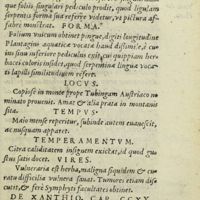 que folijs singulari pediculo prodit, quod ligulam
serpentis forma sua referre videtur, vt pictura af-
fabre monstrat. FORMA.
Folium vnicum obtinet pingue, digiti longitudine
Plantagini aquaticæ vocatæ haud dißimile, è cu-
ius sinu inferiore pediculus exit, cui quippiam her-
bacei coloris insidet, quod serpentinæ linguæ vocati
lapilli similitudinem refert.
LOCVS.
Copiosè in monte prope Tubingam Austriaco no-
minato prouenit. Amat & alia prata in montanis
sita. TEMPVS.
Maio mense reperitur, subindè autem euanescit,
ac nusquam apparet.
TEMPERAMENTVM.
Citra caliditatem insignem exiccat, id quod gu-
stus satis docet. VIRES.
Vulneraria est herba, maligna siquidem & cu-
ratu difficilia vulnera sanat. Tumores etiam discutit,
& ferè Symphyti facultates obtinet.
DE XANTHIO, CAP. CCXX